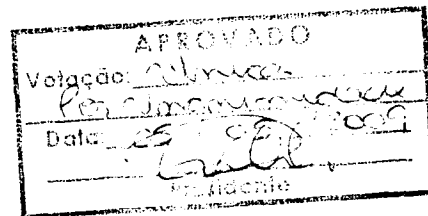 APROVADO
Votação: única
Por unanimidade
Data: 25 / 05 / 2009
Presidente